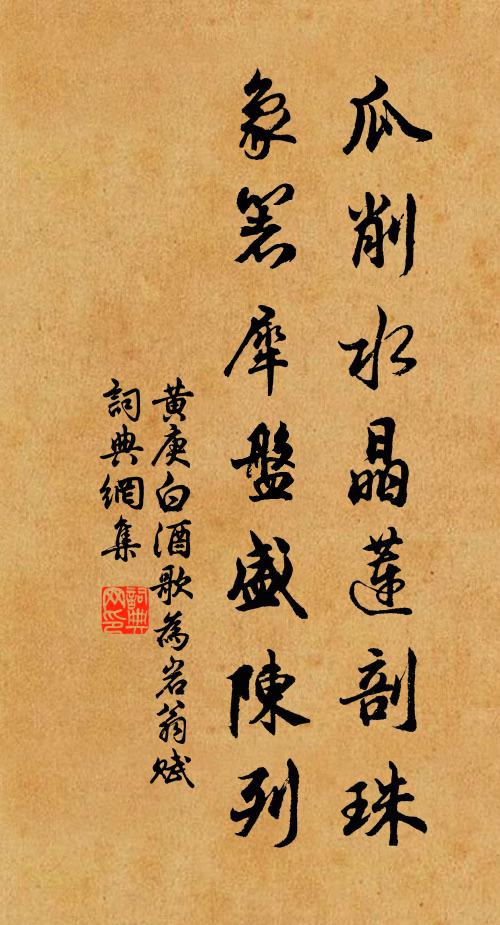 瓜削水晶蓮剖珠
象箸犀盤盛陳列
黃庚白酒歌為岩翁賦
詞典網集
詞典网印